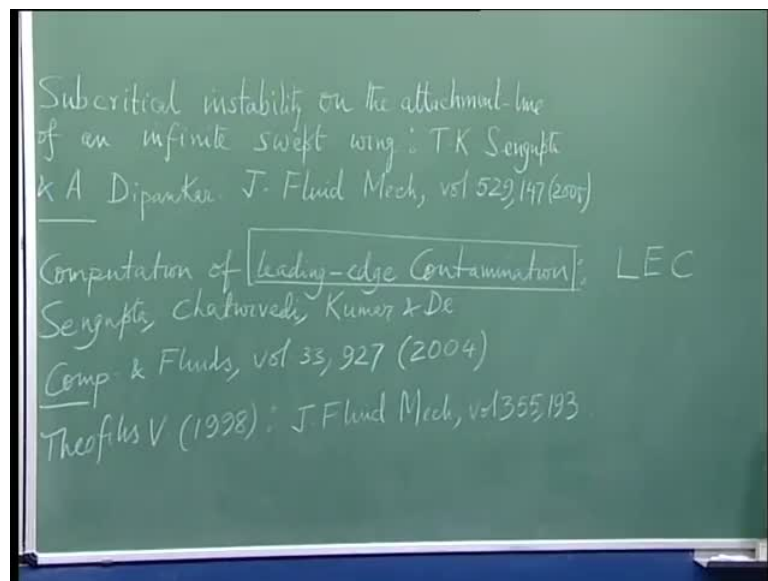 Subcritical instability on the attachment-line
of an infinite swept wing : T K Sengupta
& A Dipankar. J. Fluid Mech, vol 529, 147 (2005)
Computation of leading-edge Contamination : LEC
Sengupta, Chaturvedi, Kumar & De
Comp. & Fluids, vol 33, 927 (2004)
Theofilis V (1998) : J. Fluid Mech, vol 355, 193